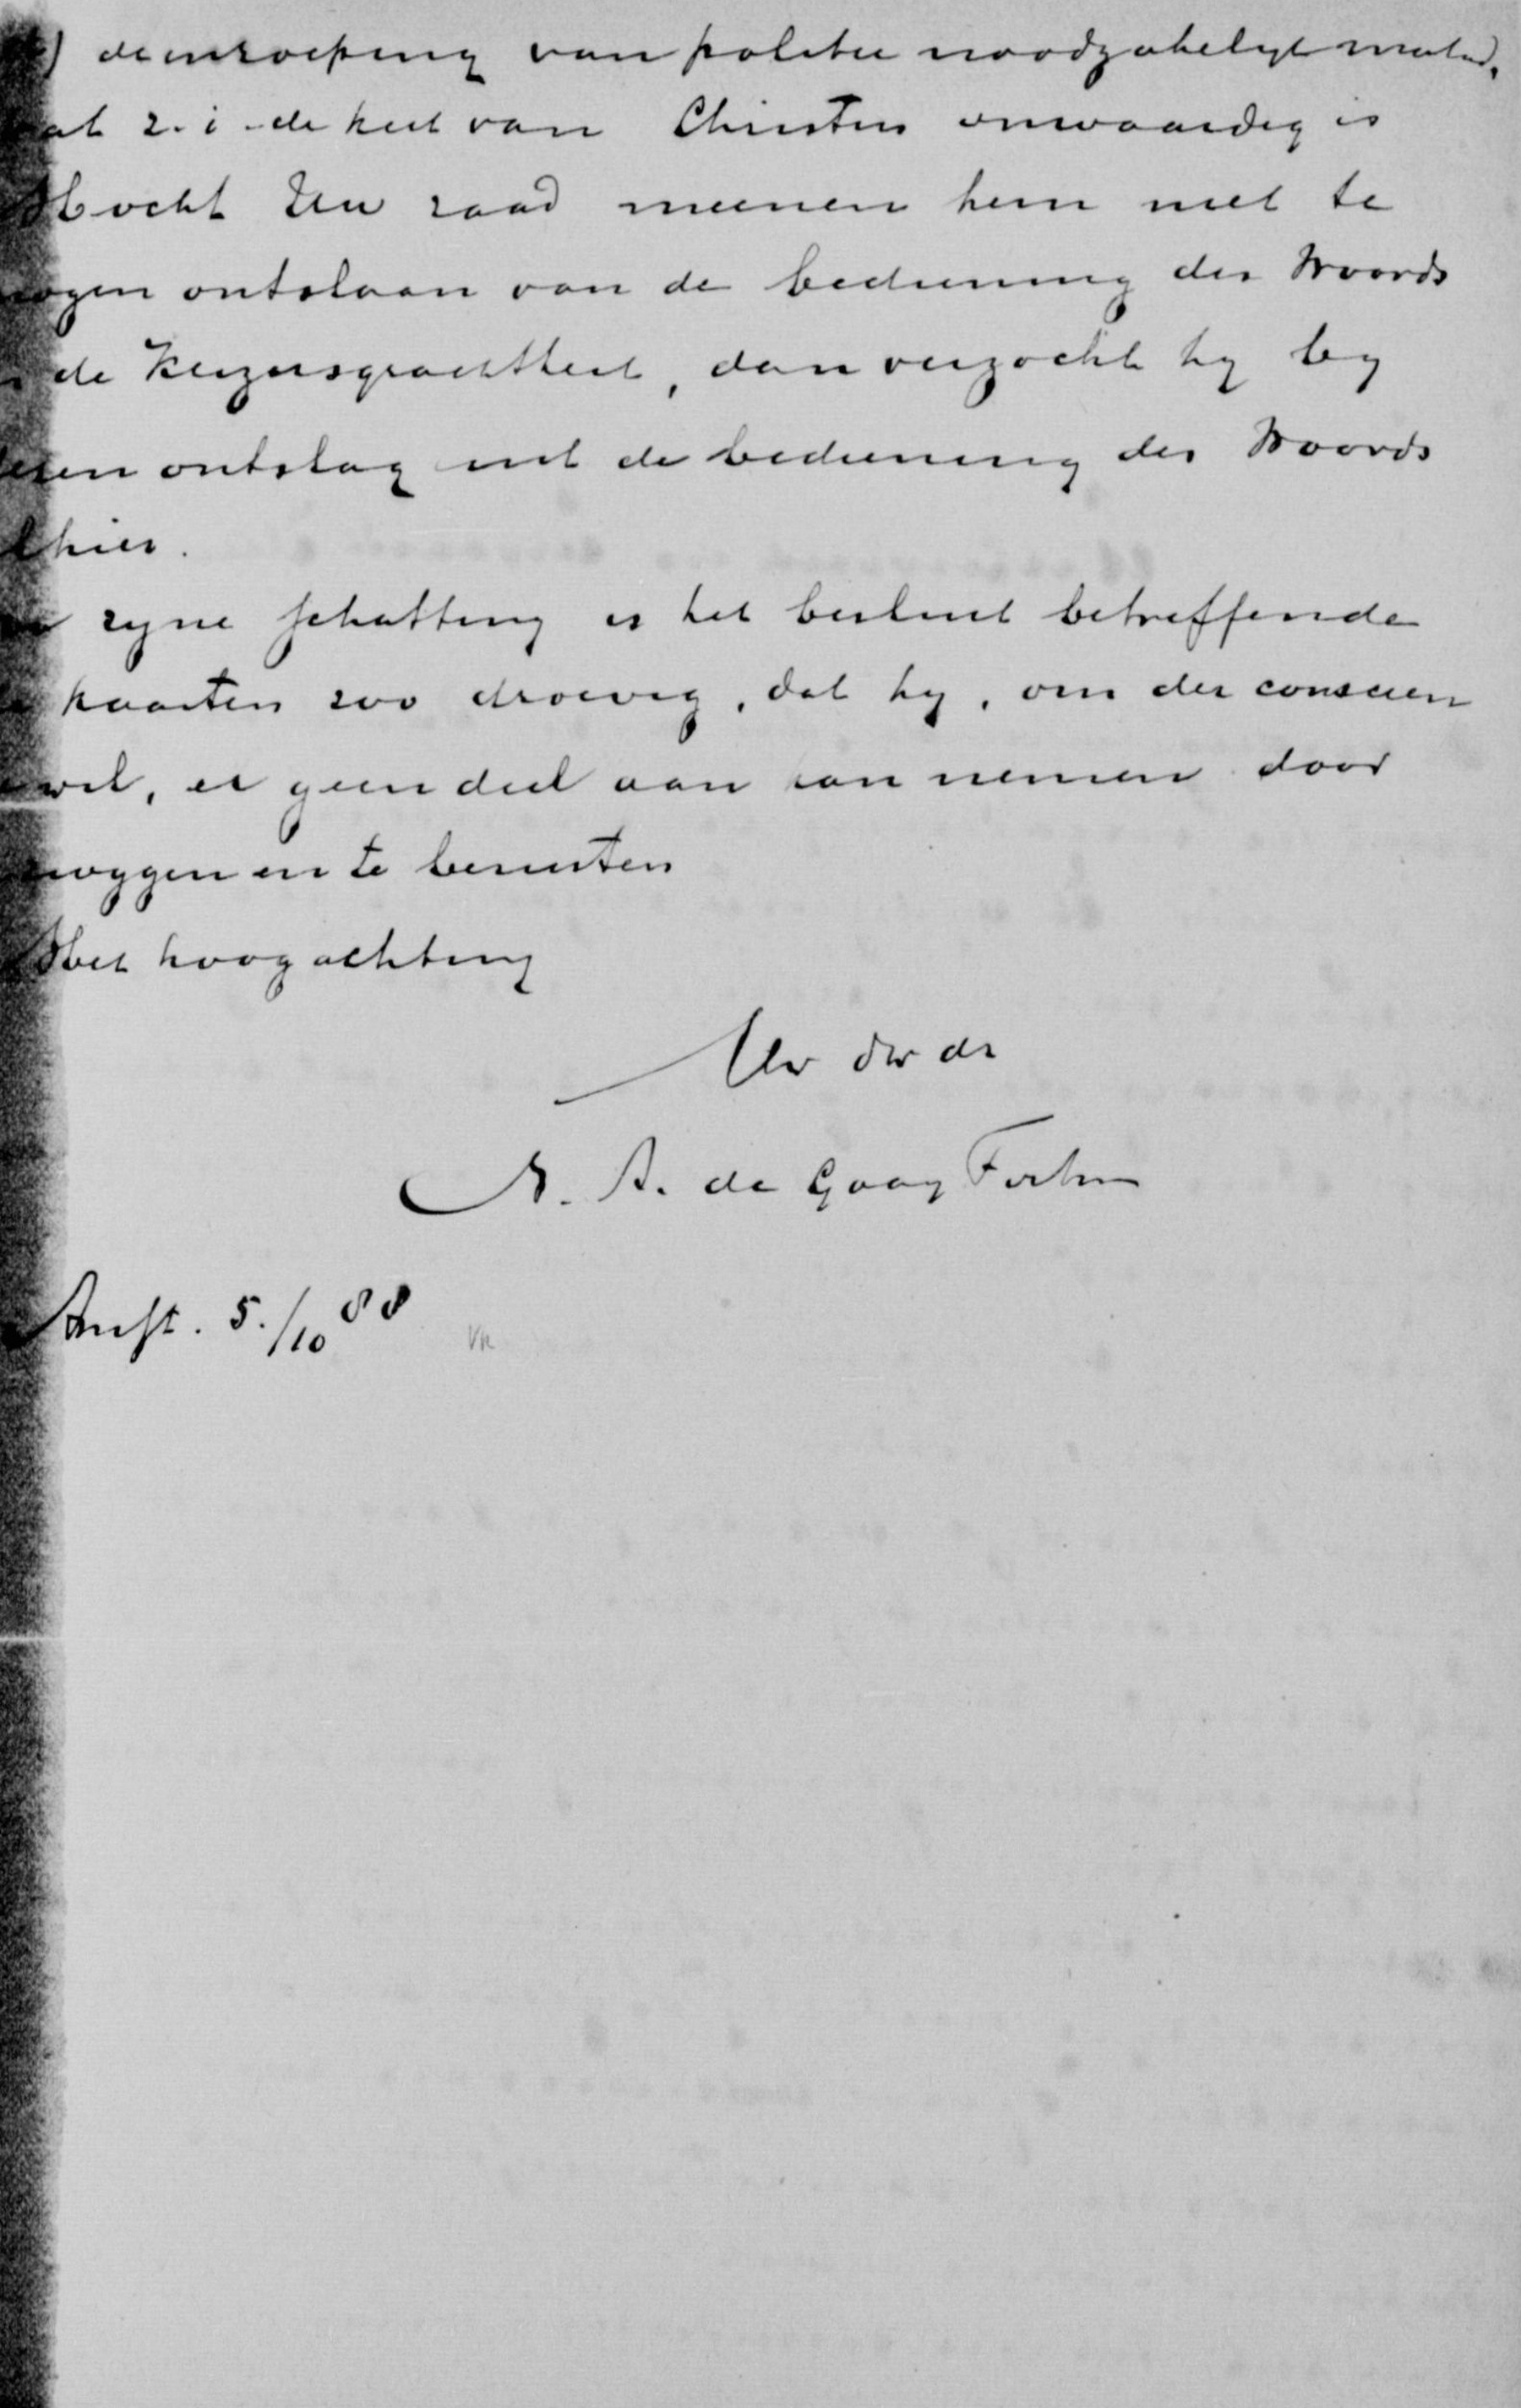 de inroeping van politie noodzakelijk maked,
at z. i. de kerk van Christus onwaardig is
Mocht Uw raad meenen hem niet te
mogen ontslaan van de bediening des Woords
de Keizersgrachtkerk, dan verzocht hij bij
dezen ontslag uit de bediening des Woords
alhier.
zijne schatting is het besluit betreffende
kaarten zoo droevig, dat hij, om der conscien
wil, er geen deel aan kan nemen door
zwijgen en te berusten
Met hoogachting
Uw dw dr
N. A. de Gaay Fortman
Amst. 5./10 88